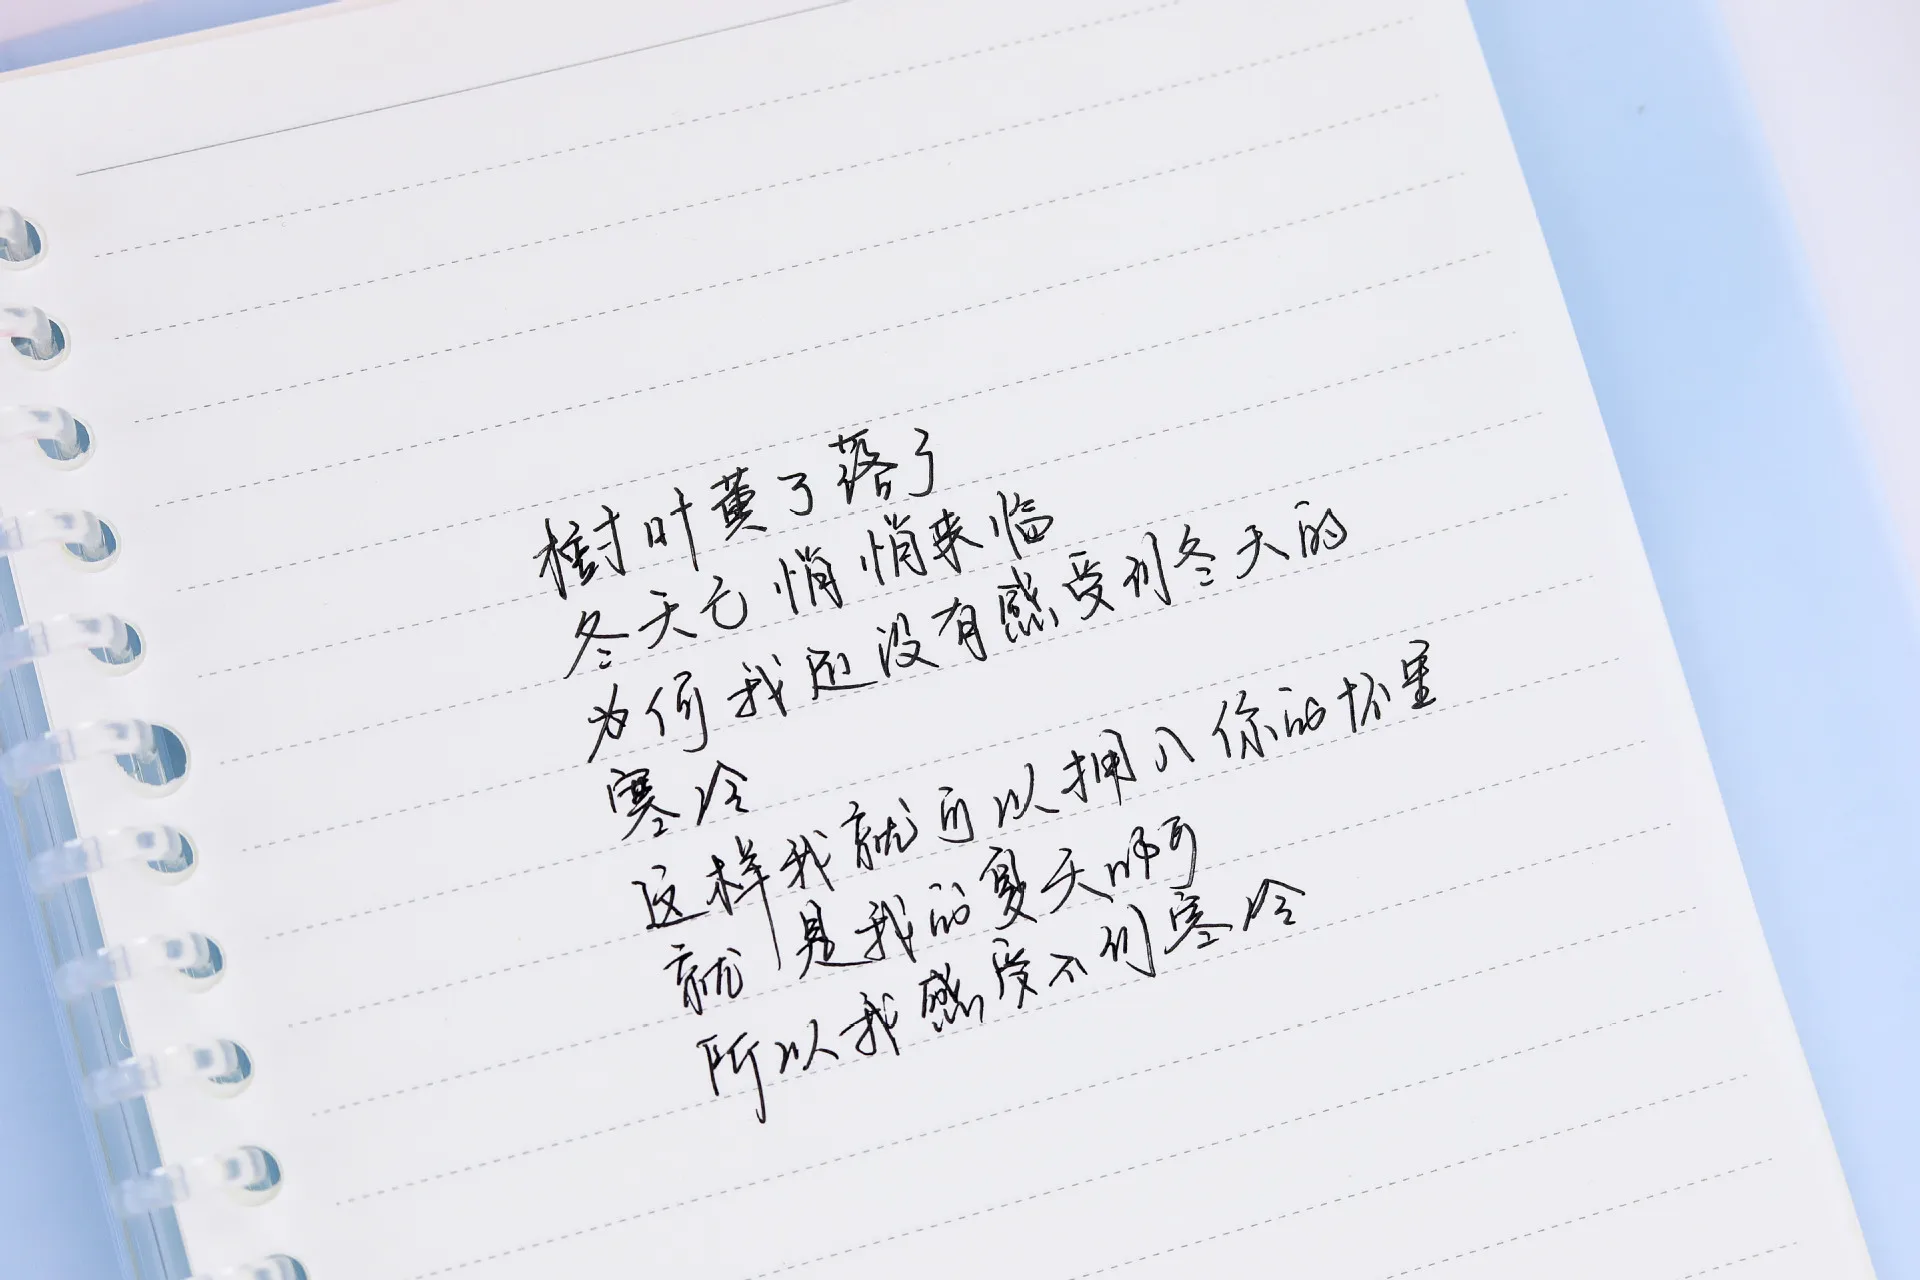 樹叶黄了落了
冬天已悄悄来临
为何我还没有感受到冬天的
寒冷
这样我就可以拥入你的怀里
就是我的夏天啊
所以我感受不到寒冷